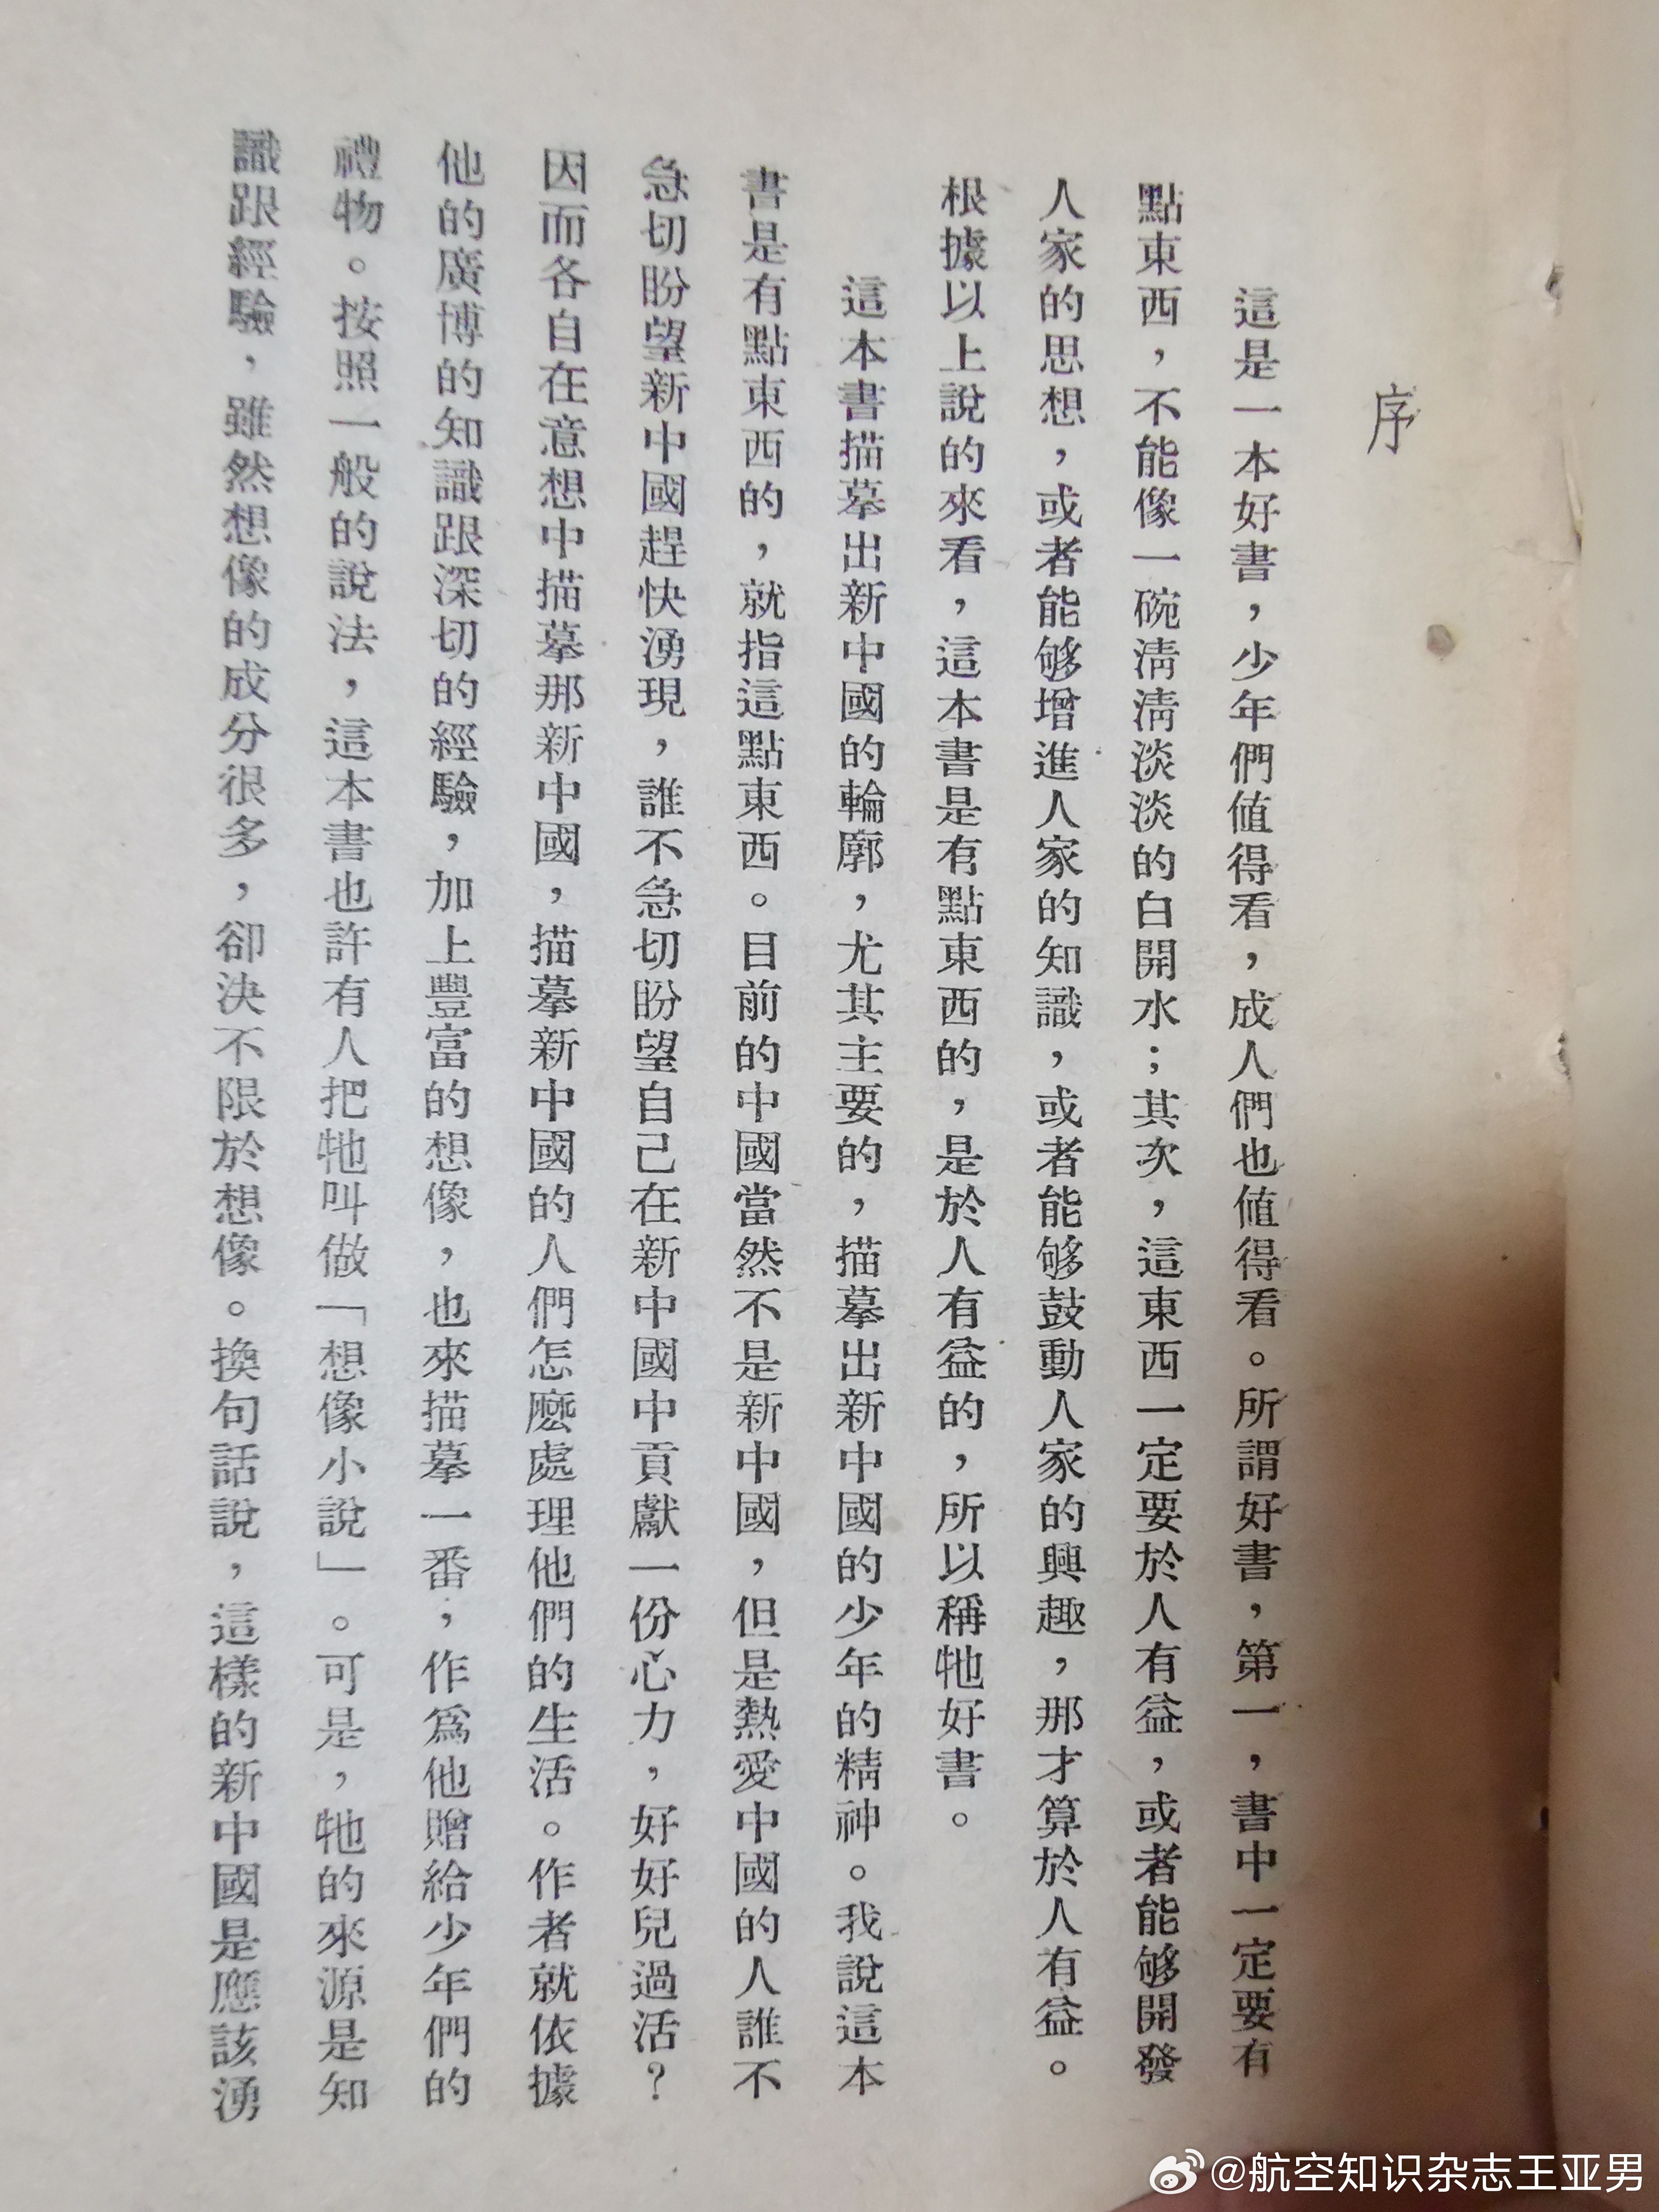 序
這是一本好書，少年們値得看，成人們也値得看。所謂好書，第一，書中一定要有
點東西，不能像一碗淸淸淡淡的白開水；其次，這東西一定要於人有益，或者能够開發
人家的思想，或者能够增進人家的知識，或者能够鼓動人家的興趣，那才算於人有益。
根據以上說的來看，這本書是有點東西的，是於人有益的，所以稱牠好書。
這本書描摹出新中國的輪廓，尤其主要的，描摹出新中國的少年的精神。我說這本
書是有點東西的，就指這點東西。目前的中國當然不是新中國，但是熱愛中國的人誰不
急切盼望新中國趕快湧現，誰不急切盼望自己在新中國中貢獻一份心力，好好兒過活？
因而各自在意想中描摹那新中國，描摹新中國的人們怎麽處理他們的生活。作者就依據
他的廣博的知識跟深切的經驗，加上豐富的想像，也來描摹一番，作爲他贈給少年們的
禮物。按照一般的說法，這本書也許有人把牠叫做「想像小說」。可是，牠的來源是知
識跟經驗，雖然想像的成分很多，卻決不限於想像。換句話說，這樣的新中國是應該湧
@航空知识杂志王亚男